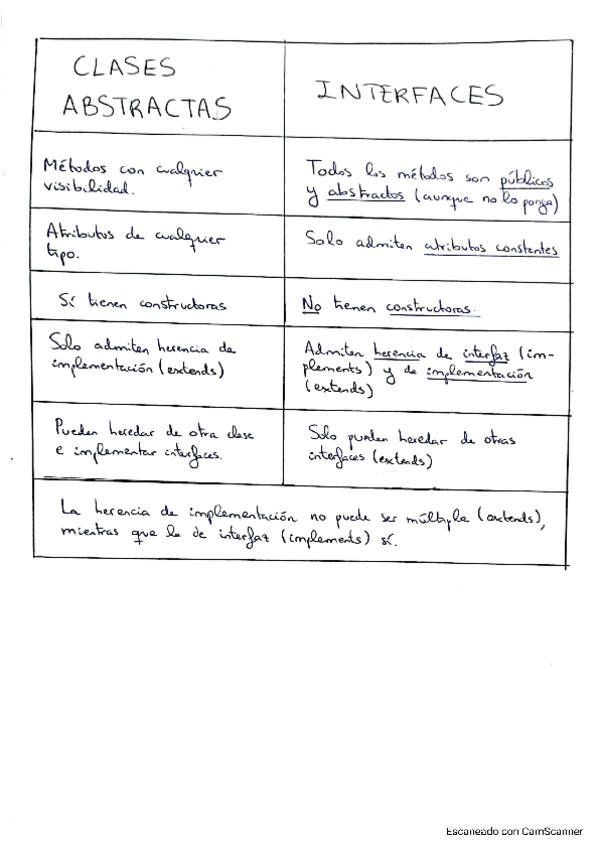 CLASES
ABSTRACTAS
INTERFACES
Métodos con cualquier
visibilidad.
Todos los métodos son públicos
y abstractos (aunque no lo ponga)
Atributos de cualquier
tipo.
Solo admiten atributos constantes
Sí tienen constructoras
No tienen constructoras.
Solo admiten herencia de
implementación (extends)
Admiten herencia de interfaz (im-
plements) y de implementación
(extends)
Pueden heredar de otra clase
e implementar interfaces.
Solo pueden heredar de otras
interfaces (extends)
La herencia de implementación no puede ser múltiple (extends),
mientras que la de interfaz (implements) sí.
Escaneado con CamScanner